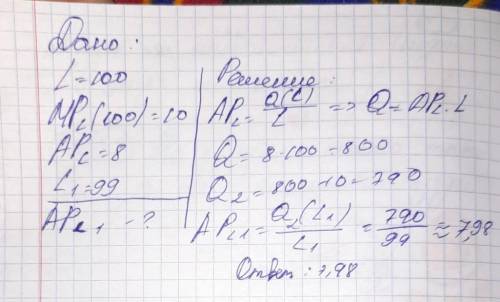 Дано:
L=100
MP_L(100)=10
AP_L=8
L_1=99
AP_L1 - ?
Решение:
AP_L = Q(L)/L => Q = AP_L · L
Q = 8·100 = 800
Q_2 = 800-10 = 790
AP_L1 = Q_2(L_1)/L_1 = 790/99 ≈ 7,98
Ответ: 7,98